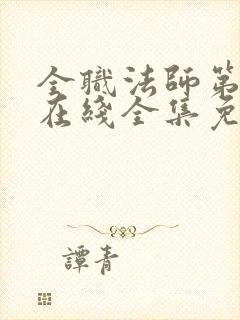 全職法師第
在綫全集免
譚青